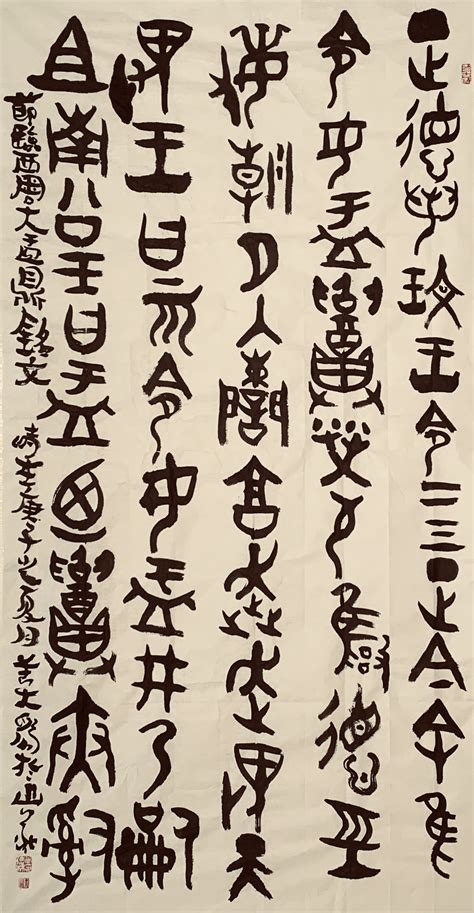 正德若玟王令二三正今余隹
令女盂召榮敬雝德巠
敏朝夕入讕享奔走畏天
畏王曰而令女盂井乃嗣
且南公王曰盂迺召夾
節臨西周大盂鼎銘文 時在庚子之夏日